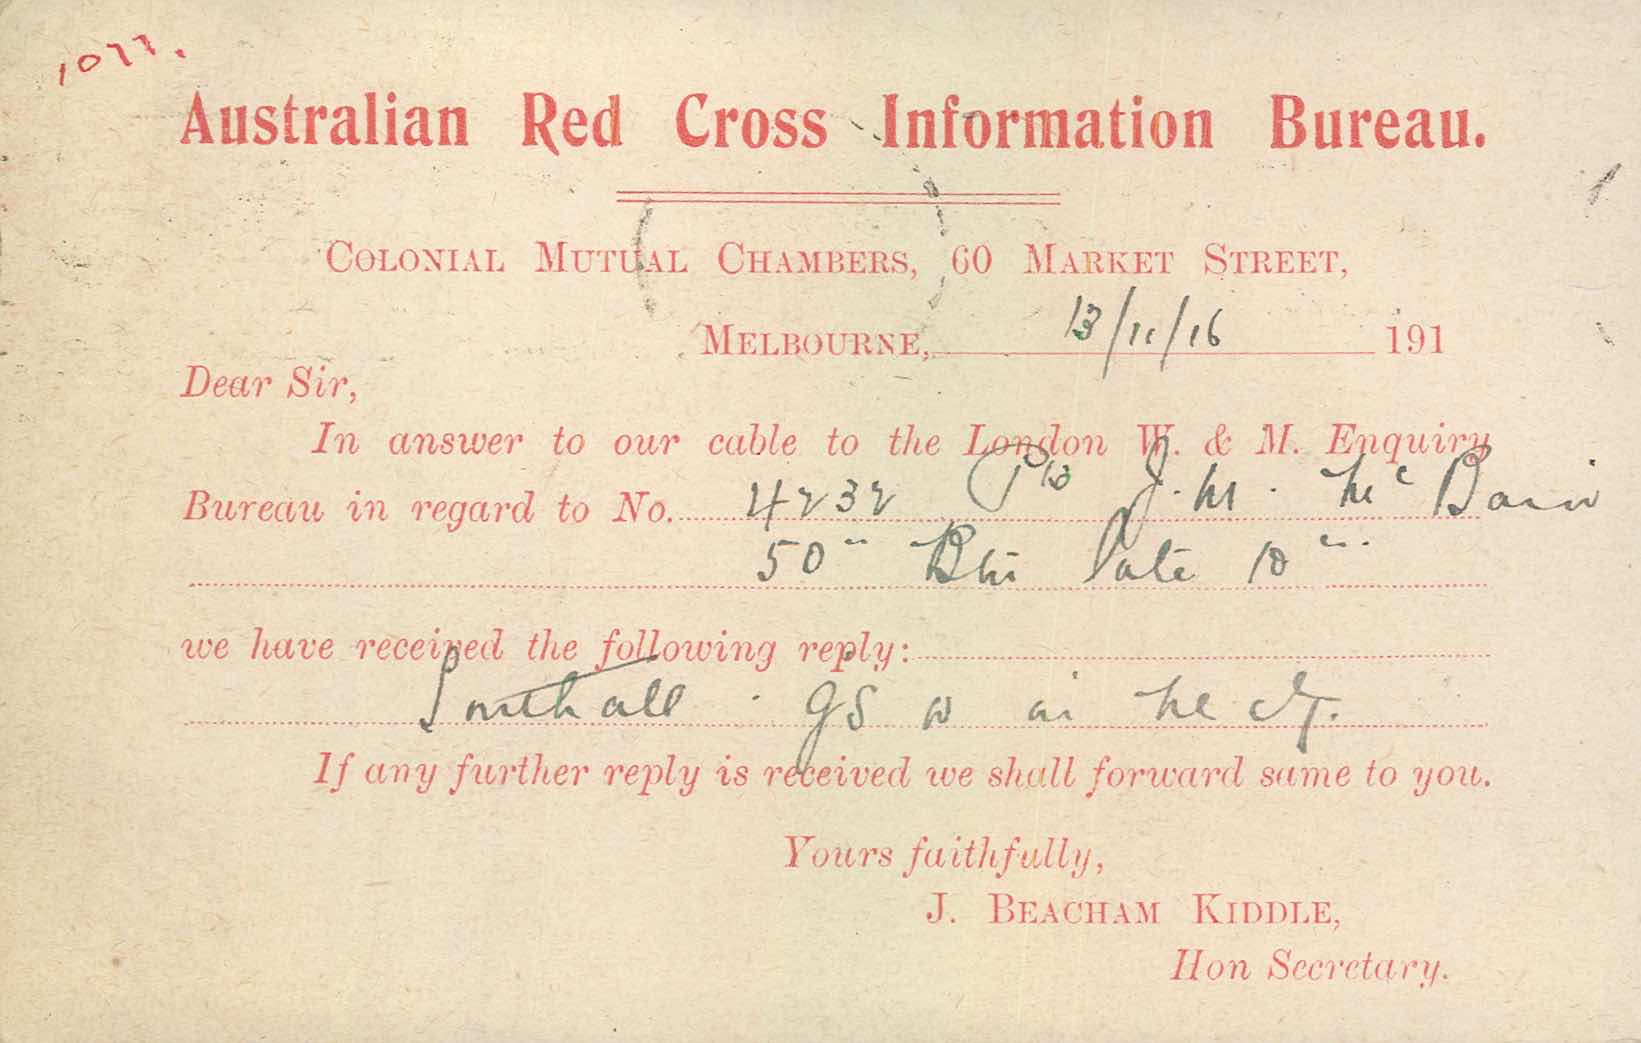 1077.
Australian Red Cross Information Bureau.
COLONIAL MUTUAL CHAMBERS, 60 MARKET STREET,
MELBOURNE, 13/11/16 191
Dear Sir,
In answer to our cable to the London W. & M. Enquiry
Bureau in regard to No. 4232 Pte J. M. McBain
50th Bn late 10th.
we have received the following reply:
Southall. GSW in
If any further reply is received we shall forward same to you.
Yours faithfully,
J. BEACHAM KIDDLE,
Hon Secretary.